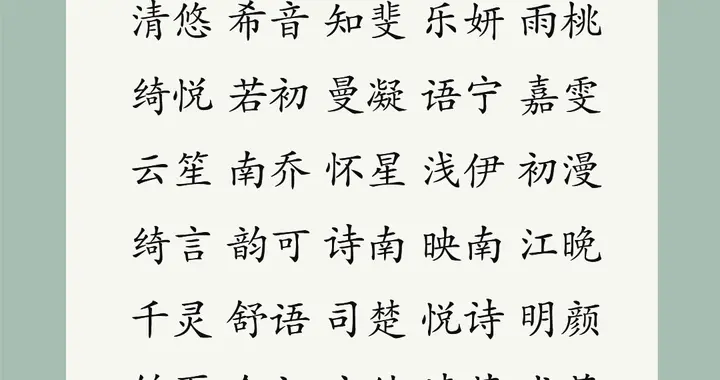 清悠 希音 知斐 乐妍 雨桃
绮悦 若初 曼凝 语宁 嘉雯
云笙 南乔 怀星 浅伊 初漫
绮言 韵可 诗南 映南 江晚
千灵 舒语 司楚 悦诗 明颜